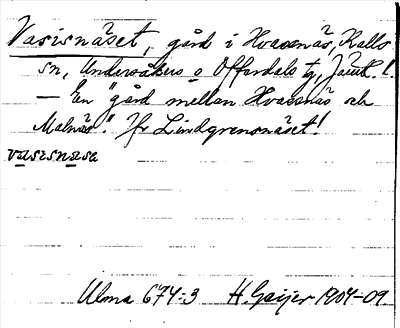 Vasisnäset, gård i Hvassnäs, Kalls
sn, Undersåkers o Offerdals tg, Jämtl. l.
— En "gård mellan Hvassnäs och
Malnäs." Jfr Lindgrensnäset!
vasisnasa
Ulma 674:3 H. Geijer 1904-09.